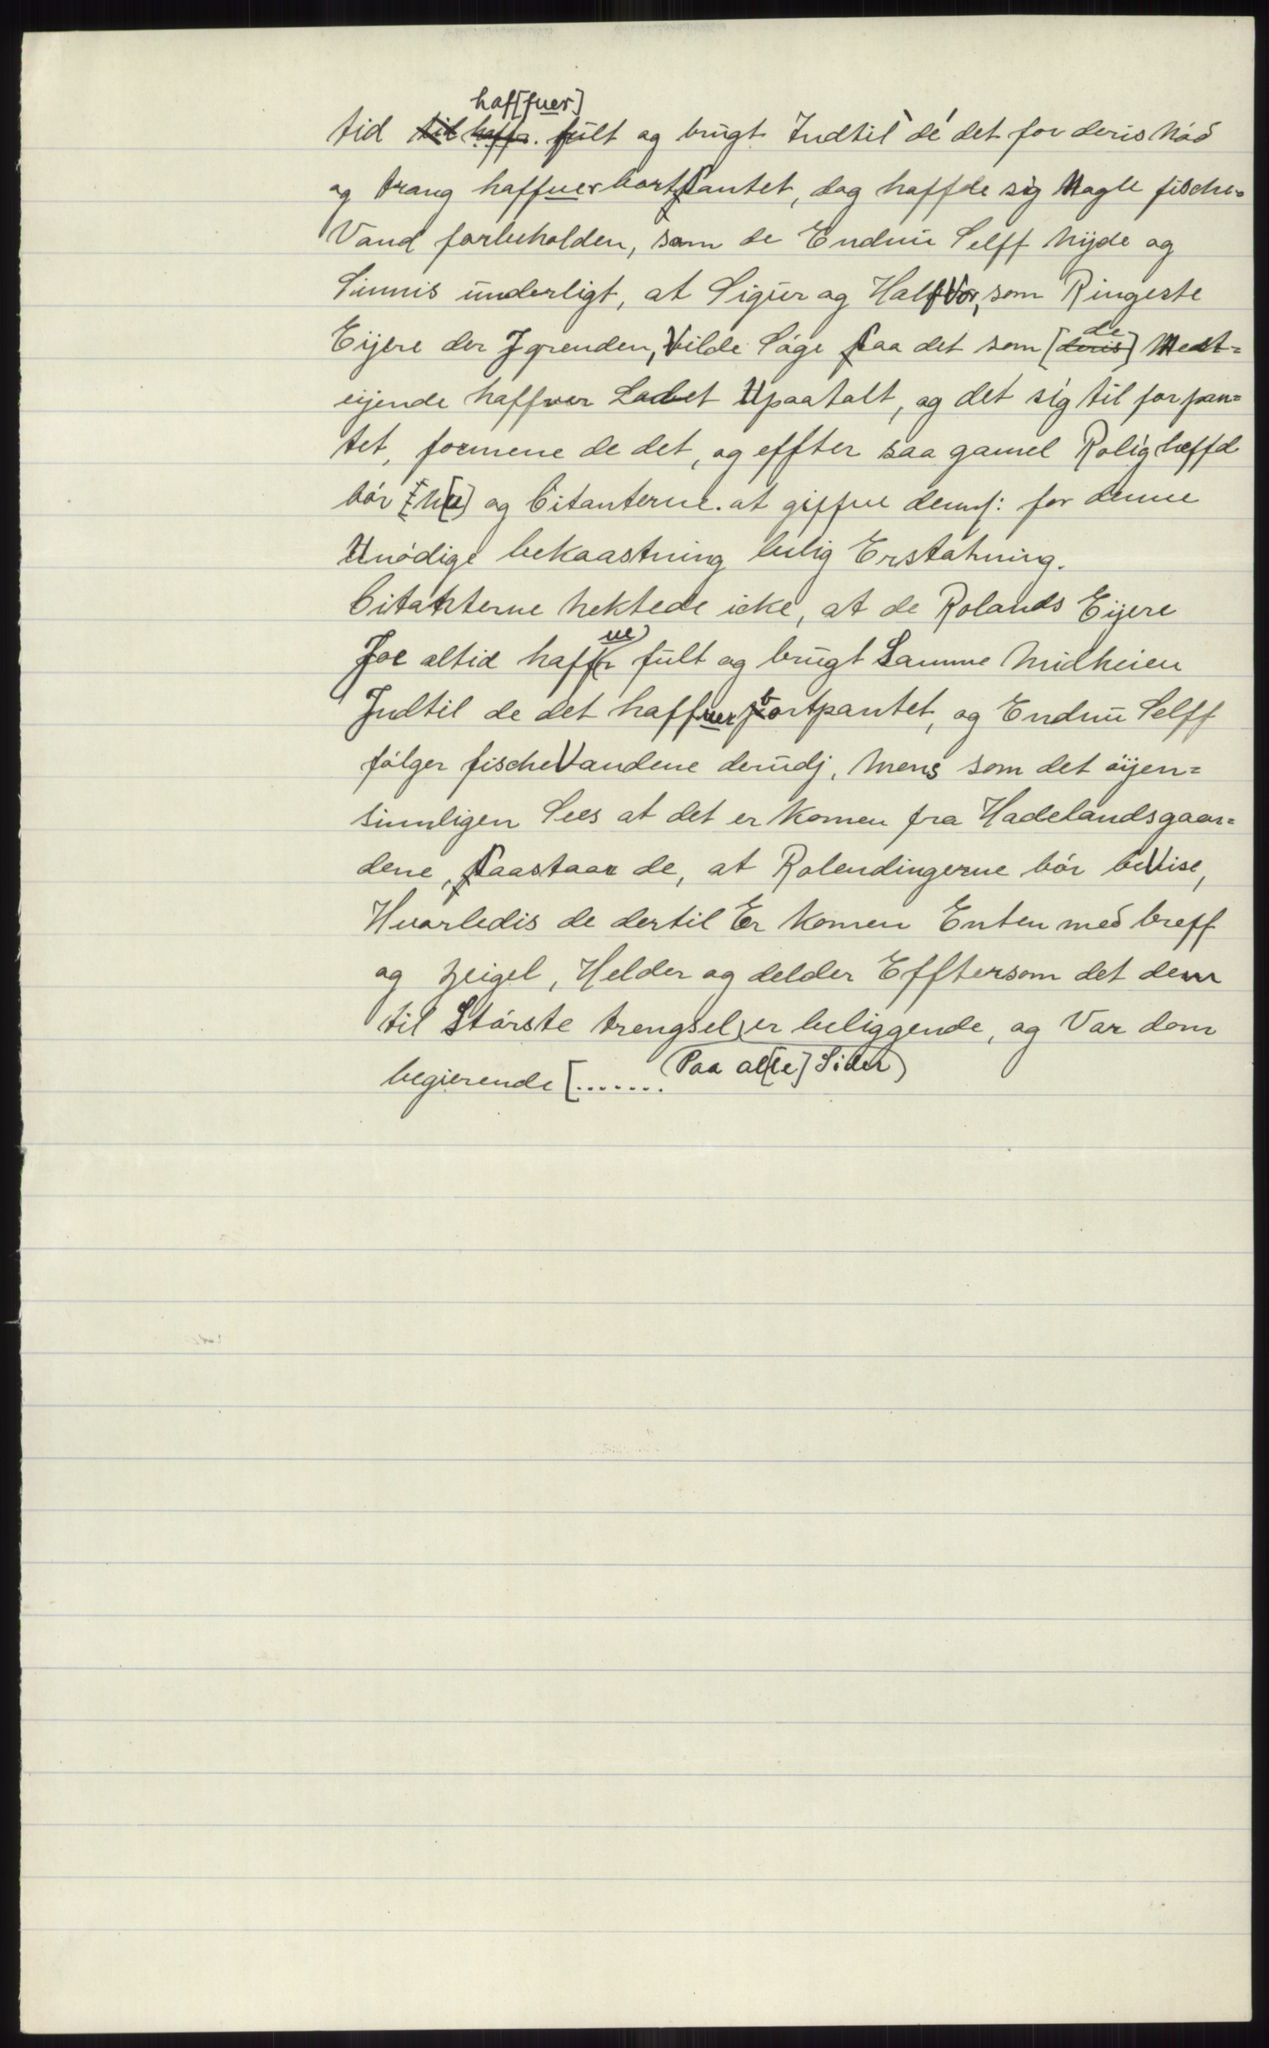 haf[fuer]
tid til haffr. fült og brugt Indtil de det for deris Nöd
og trang haffuer bortPantet, dog haffde sig Nogle fische=
Vand forbeholden, som de Endnü Selff Nÿde og
Sünnis ünderligt, at Sigür og HalfVor, som Ringeste
Eÿere der J grenden, Vilde Söge Paa det som [deris] de Medt=
eÿende haffver Ladet Upaatalt, og det sig til forpan=
tet, formene de det, og effter saa gamel Rolig hæffd
bör Nÿ[de] og Citanterne at giffue demf: for denne
Unödige bekaastning bilig Erstatning.
Citanterne Nektede icke, at de Rolands Eÿere
Joe altid haffue fült og brügt Samme Midheien
Indtil de det haffuer bortpantet, og Endnü Selff
fölger fischeVandene derüdj, Mens som det öÿen=
sÿnnligen Sees at det er Komen fra Hadelandsgaar=
dene, Paastaar de, at Rolendingerne bör beVise,
Hvorledis de dertil Er Komen Enten med breff
og Zeigel, Helder og delder Efftersom det dem
til Störste trengsel er beliggende, og Var dom
(Paa al[le] Sider)
begierende [.......